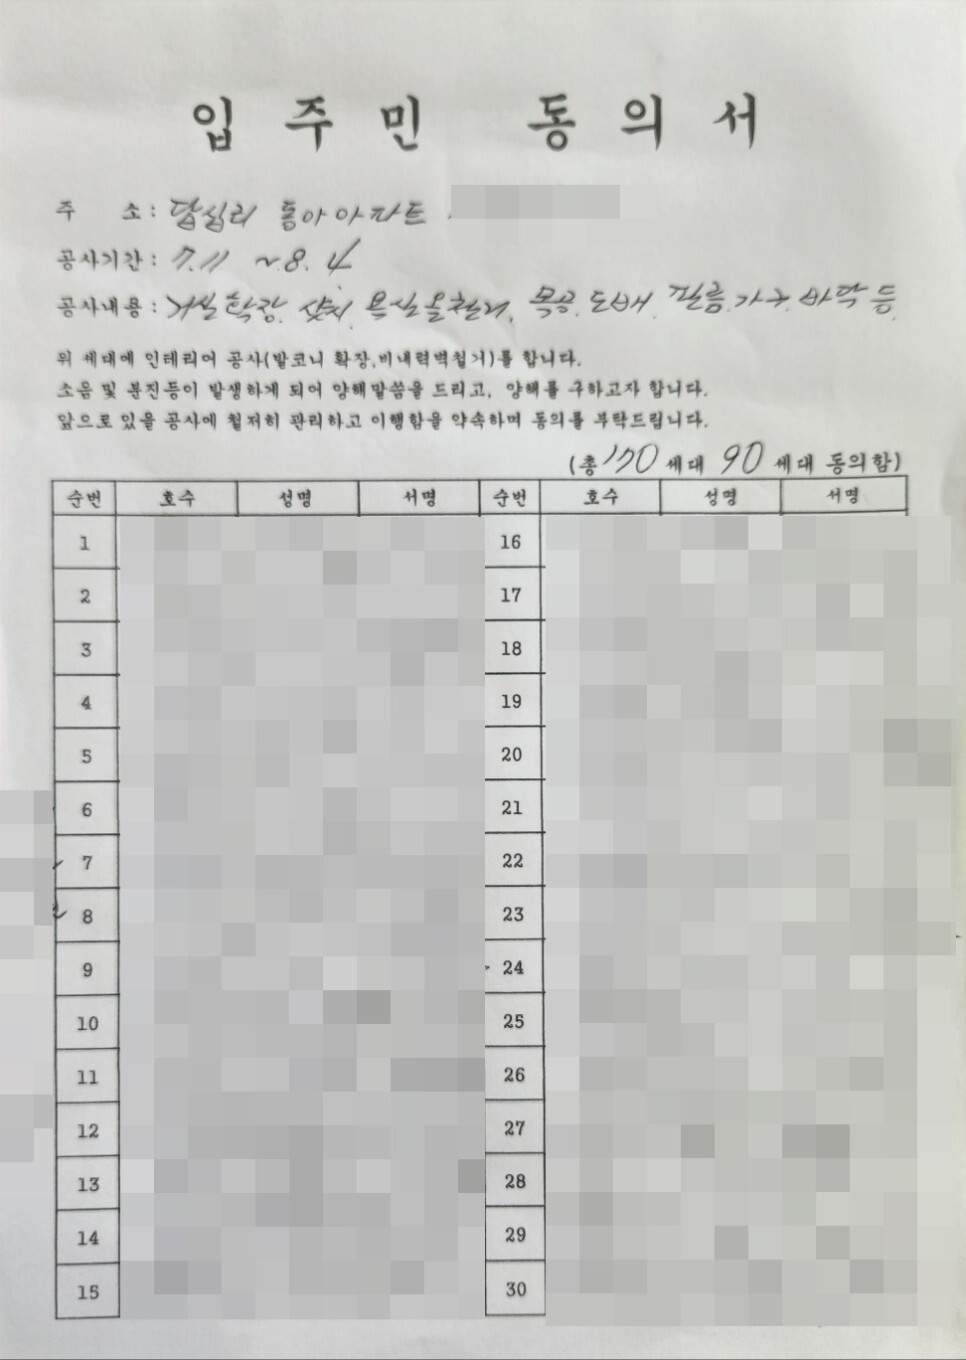 입주민 동의서
주 소 : 답십리 동아아파트
공사기간 : 7.11 ~ 8. 4
공사내용 : 거실확장. 샷시. 욕실올철거. 목공. 도배. 필름. 가구. 바닥 등
위 세대에 인테리어 공사(발코니 확장,비내력벽철거)를 합니다.
소음 및 분진등이 발생하게 되어 양해말씀을 드리고, 양해를 구하고자 합니다.
앞으로 있을 공사에 철저히 관리하고 이행함을 약속하며 동의를 부탁드립니다.
(총 170 세대 90 세대 동의함)
순번 호수 성명 서명 순번 호수 성명 서명
1 16
2 17
3 18
4 19
5 20
6 21
7 22
8 23
9 24
10 25
11 26
12 27
13 28
14 29
15 30